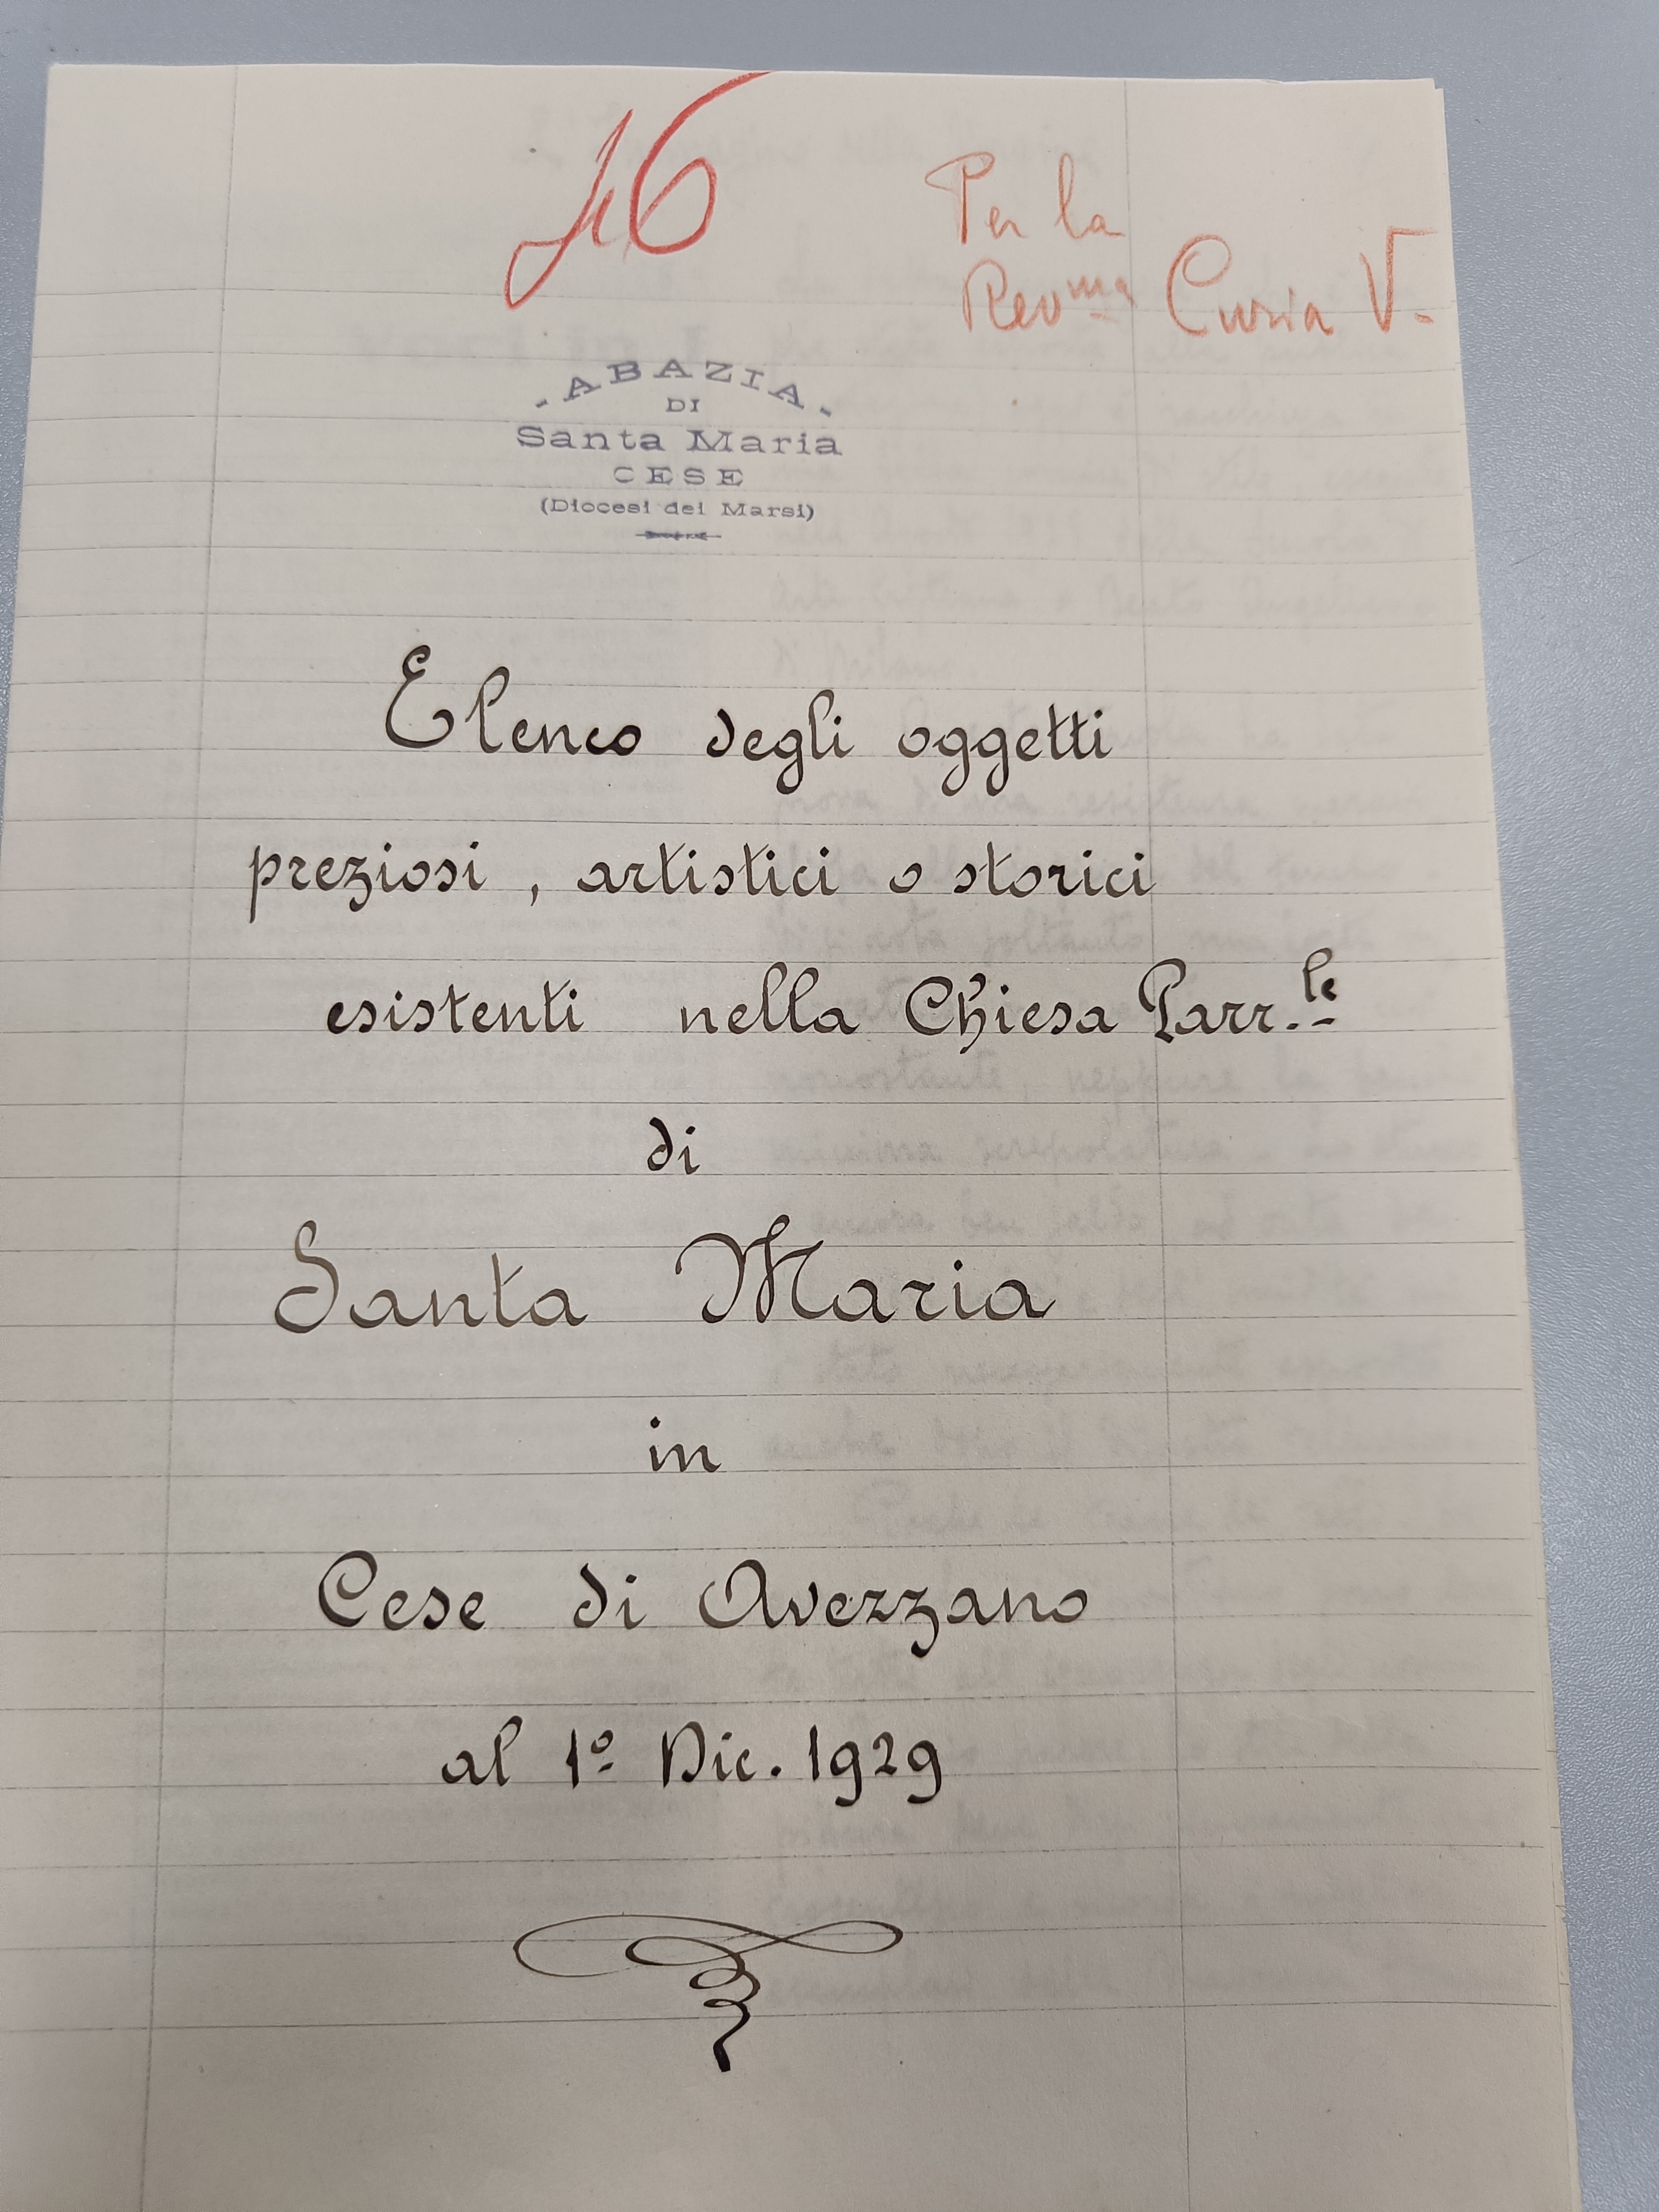 46
Per la
Rev.ma Curia V.
- ABAZIA -
DI
Santa Maria
CESE
(Diocesi dei Marsi)
Elenco degli oggetti
preziosi, artistici o storici
esistenti nella Chiesa Parr.le
di
Santa Maria
in
Cese di Avezzano
al 1º Dic. 1929